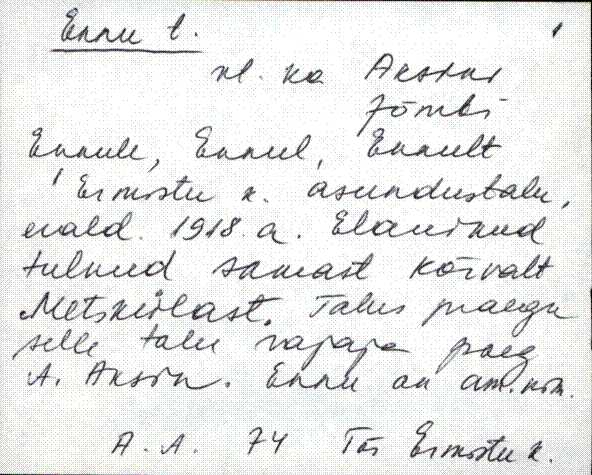 Ennu t.
nl. ka Aksini
Jõmbi
Ennule, Ennul, Ennult
Ermistu k. asundustalu,
erald. 1918. a. Elanikud
tulnud samast kõrvalt
Metskülast. Talus praegu
selle talu rajaja poeg
A. Aksin. Ennu on am. nim.
A. A. 74 Tõs Ermistu k.